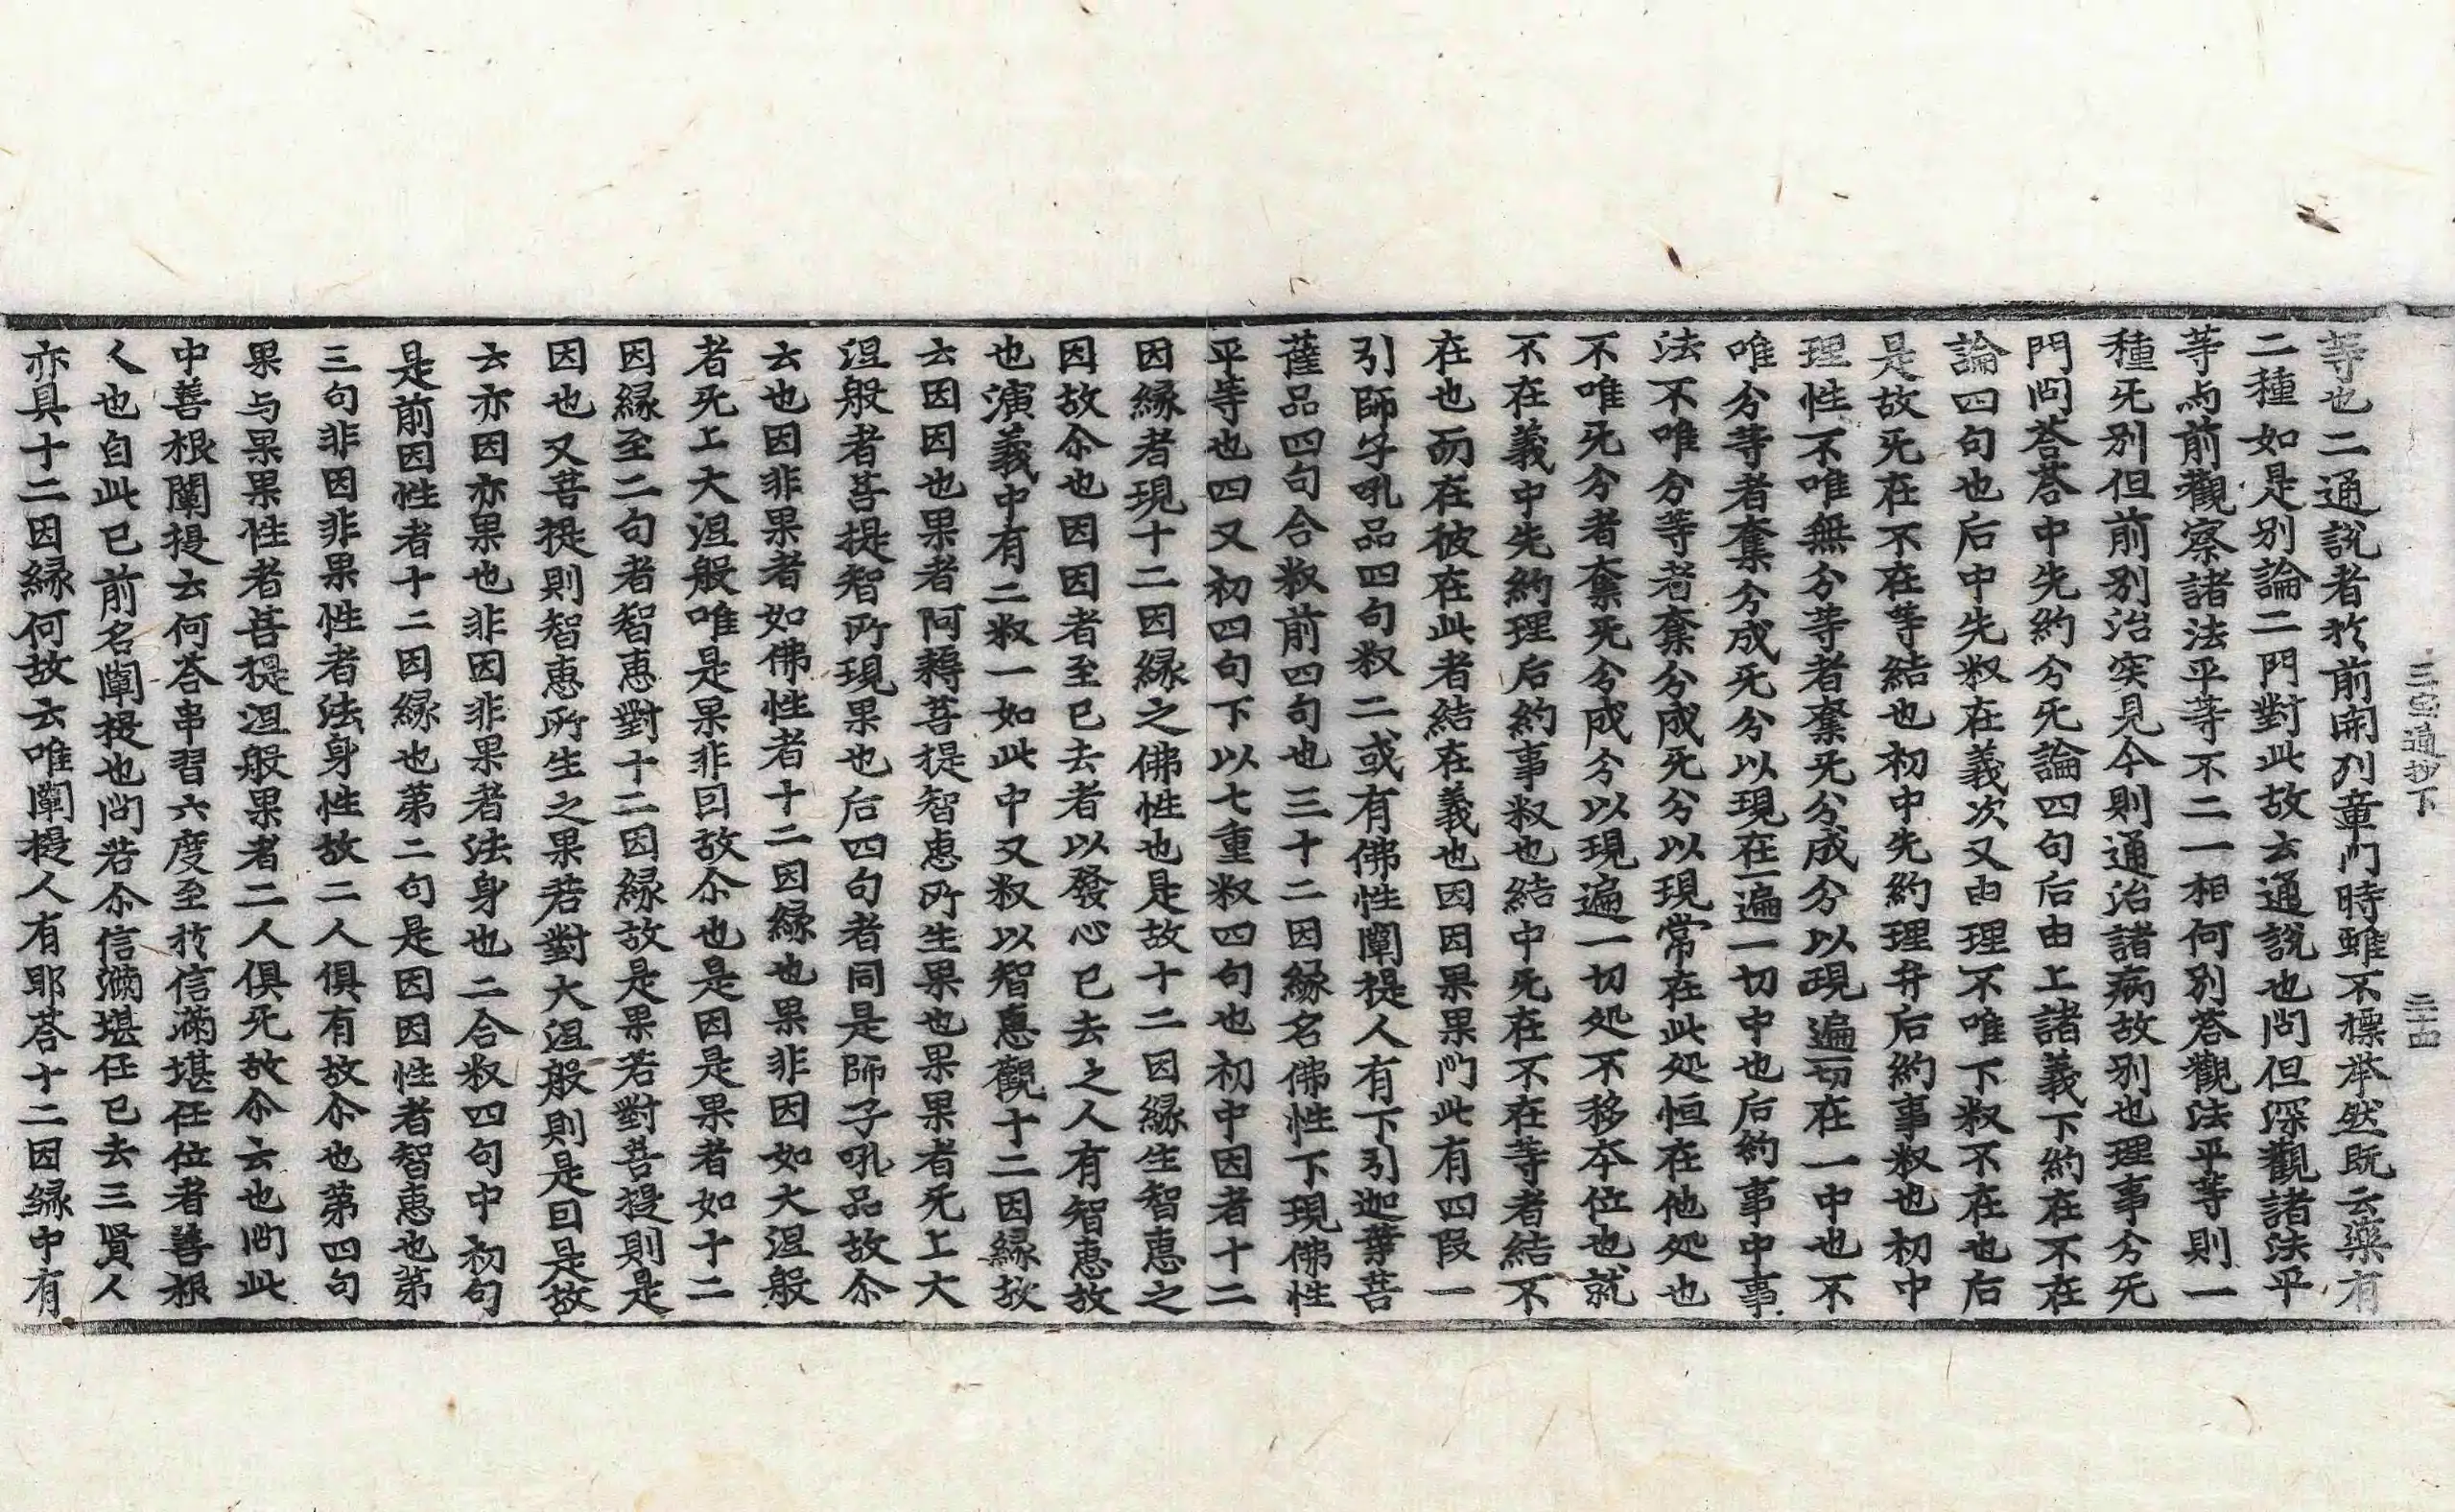 三宝通抄下 二十四
等也二通說者扵前開列章門時雖不摽举然既云藥有
二種如是別論二門對此故去通說也問但深觀諸法平
等与前觀察諸法平等不二一相何別荅觀法平等則一
種旡別但前別治突見今則通治諸病故別也理事分旡
門問荅荅中先約分旡論四句后由上諸義下約在不在
論四句也后中先叙在義次又由理不唯下叙不在也后
是故旡在不在等結也初中先約理弁后約事叙也初中
理性不唯無分等者奪旡分成分以現遍一切在一中也不
唯分等者奪分成旡分以現在一遍一切中也后約事中事
法不唯分等者奪分成旡分以現常在此処恒在他処也
不唯旡分者奪旡分成分以現遍一切処不移本位也就
不在義中先約理后約事叙也結中旡在不在等者結不
在也而在彼在此者結在義也因因果果門此有四段一
引師子吼品四句叙二或有佛性闡提人有下引迦葉菩
薩品四句合叙前四句也三十二因緣名佛性下現佛性
平等也四又初四句下以七重叙四句也初中因者十二
因縁者現十二因縁之佛性也是故十二因縁生智惠之
因故尒也因因者至已去者以發心已去之人有智惠故
也演義中有二叙一如此中又叙以智惠觀十二因縁故
云因因也果者阿耨菩提智惠所生果也果果者旡上大
涅般者菩提智所現果也后四句者同是師子吼品故尒
去也因非果者如佛性者十二因縁也果非因如大涅般
者旡上大涅般唯是果非因故尒也是因是果者如十二
因縁至二句者智惠對十二因縁故是果若對菩提則是
因也又菩提則智惠所生之果若對大涅般則是因是故
云亦因亦果也非因非果者法身也二合叙四句中初句
是前因性者十二因縁也第二句是因因性者智惠也第
三句非因非果性者法身性故二人俱有故尒也第四句
果与果果性者菩提涅般果者二人俱旡故尒云也問此
中善根闡提云何荅串習六度至扵信滿堪任位者善根
人也自此已前名闡提也問若尒信滿堪任已去三賢人
亦具十二因縁何故云唯闡提人有耶荅十二因縁中有